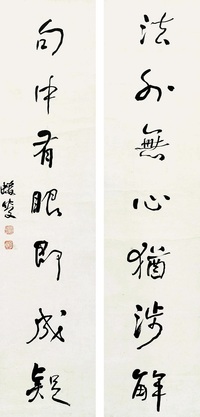 法外無心猶涉解
句中有眼即成疑